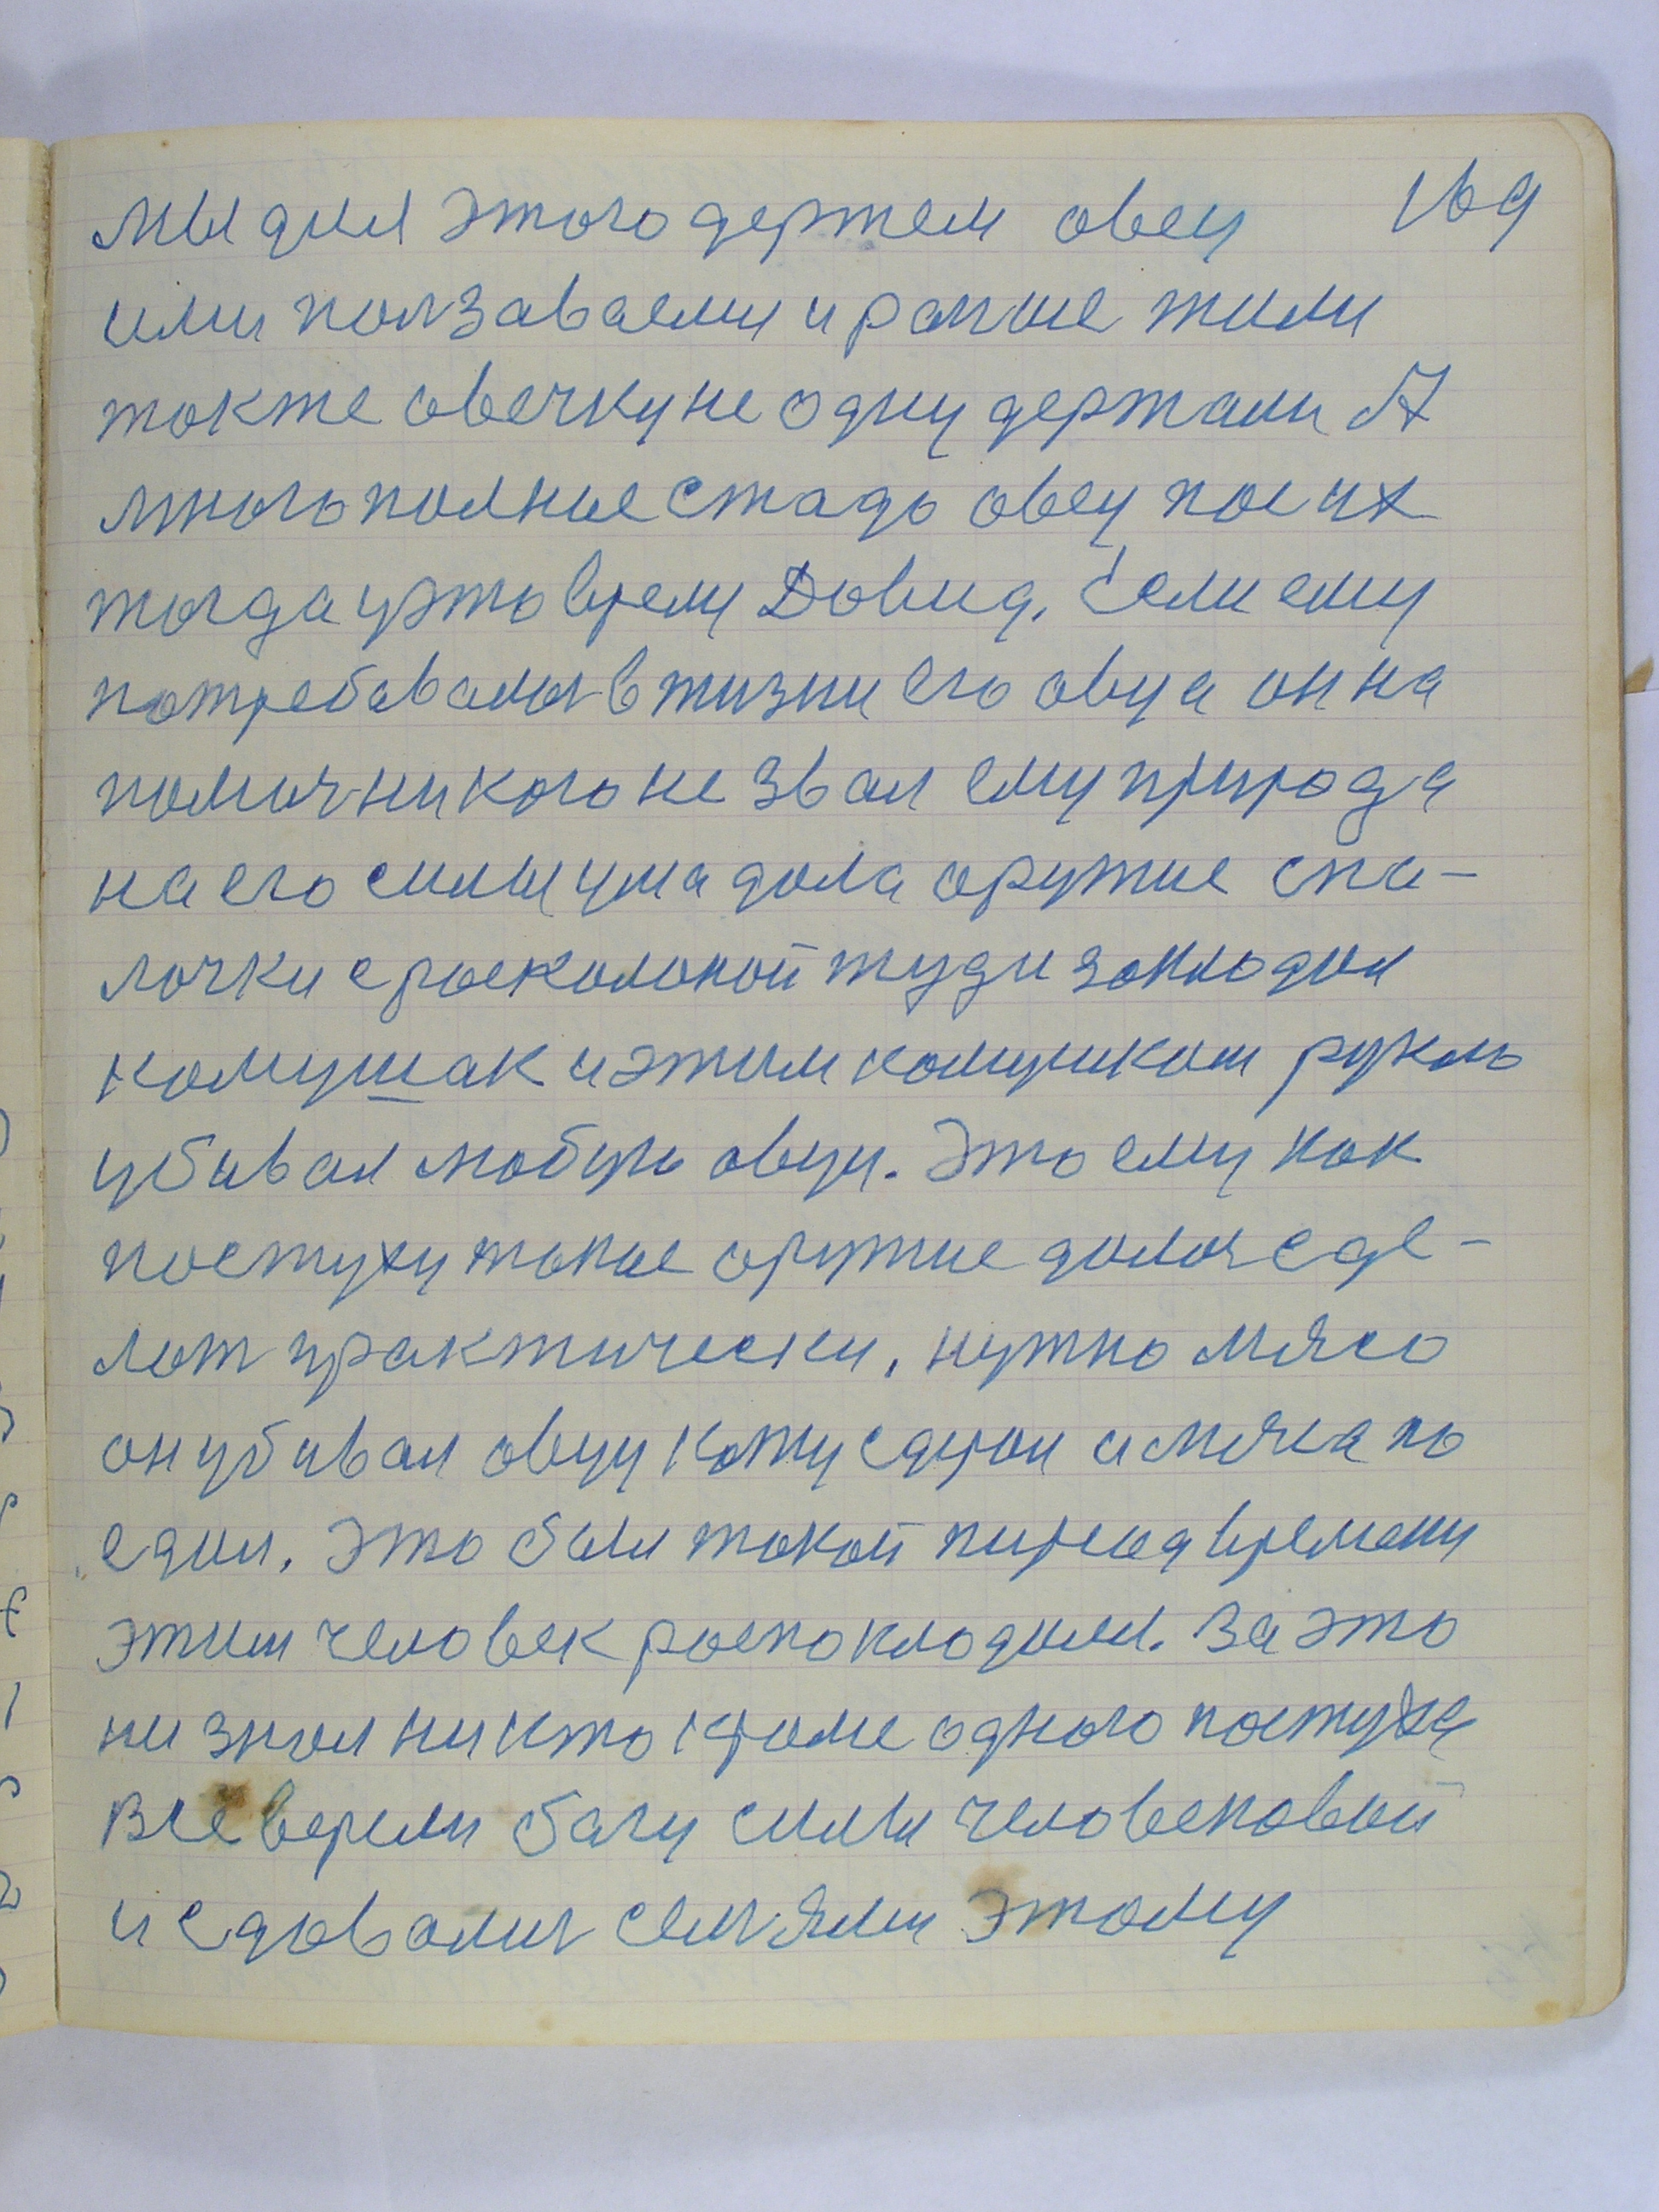 мы для этого держем овец 169
ими ползаваемы и раньше жили
также овечку не одну держали А
много полные стадо овец пос их
тогда у это время Довид. Если ему
потребавалы в жизни его овца он на
помоч никого не звал ему природа
на его силы ума дала оружие спа-
лочки с росколоной туди закладал
комушак и этим комушком руколь
убивал любую овцу. Это ему как
постуху такие оружие далось сде-
лат практически, нужно мясо
он убивал овцу кожу сдрал а мяса по
едал. Это был такой пириод времени
этим человек роспокладал. За это
ни знал никто кроме одного постуха
Все верели богу силы человековой
и сдовалис семями этому